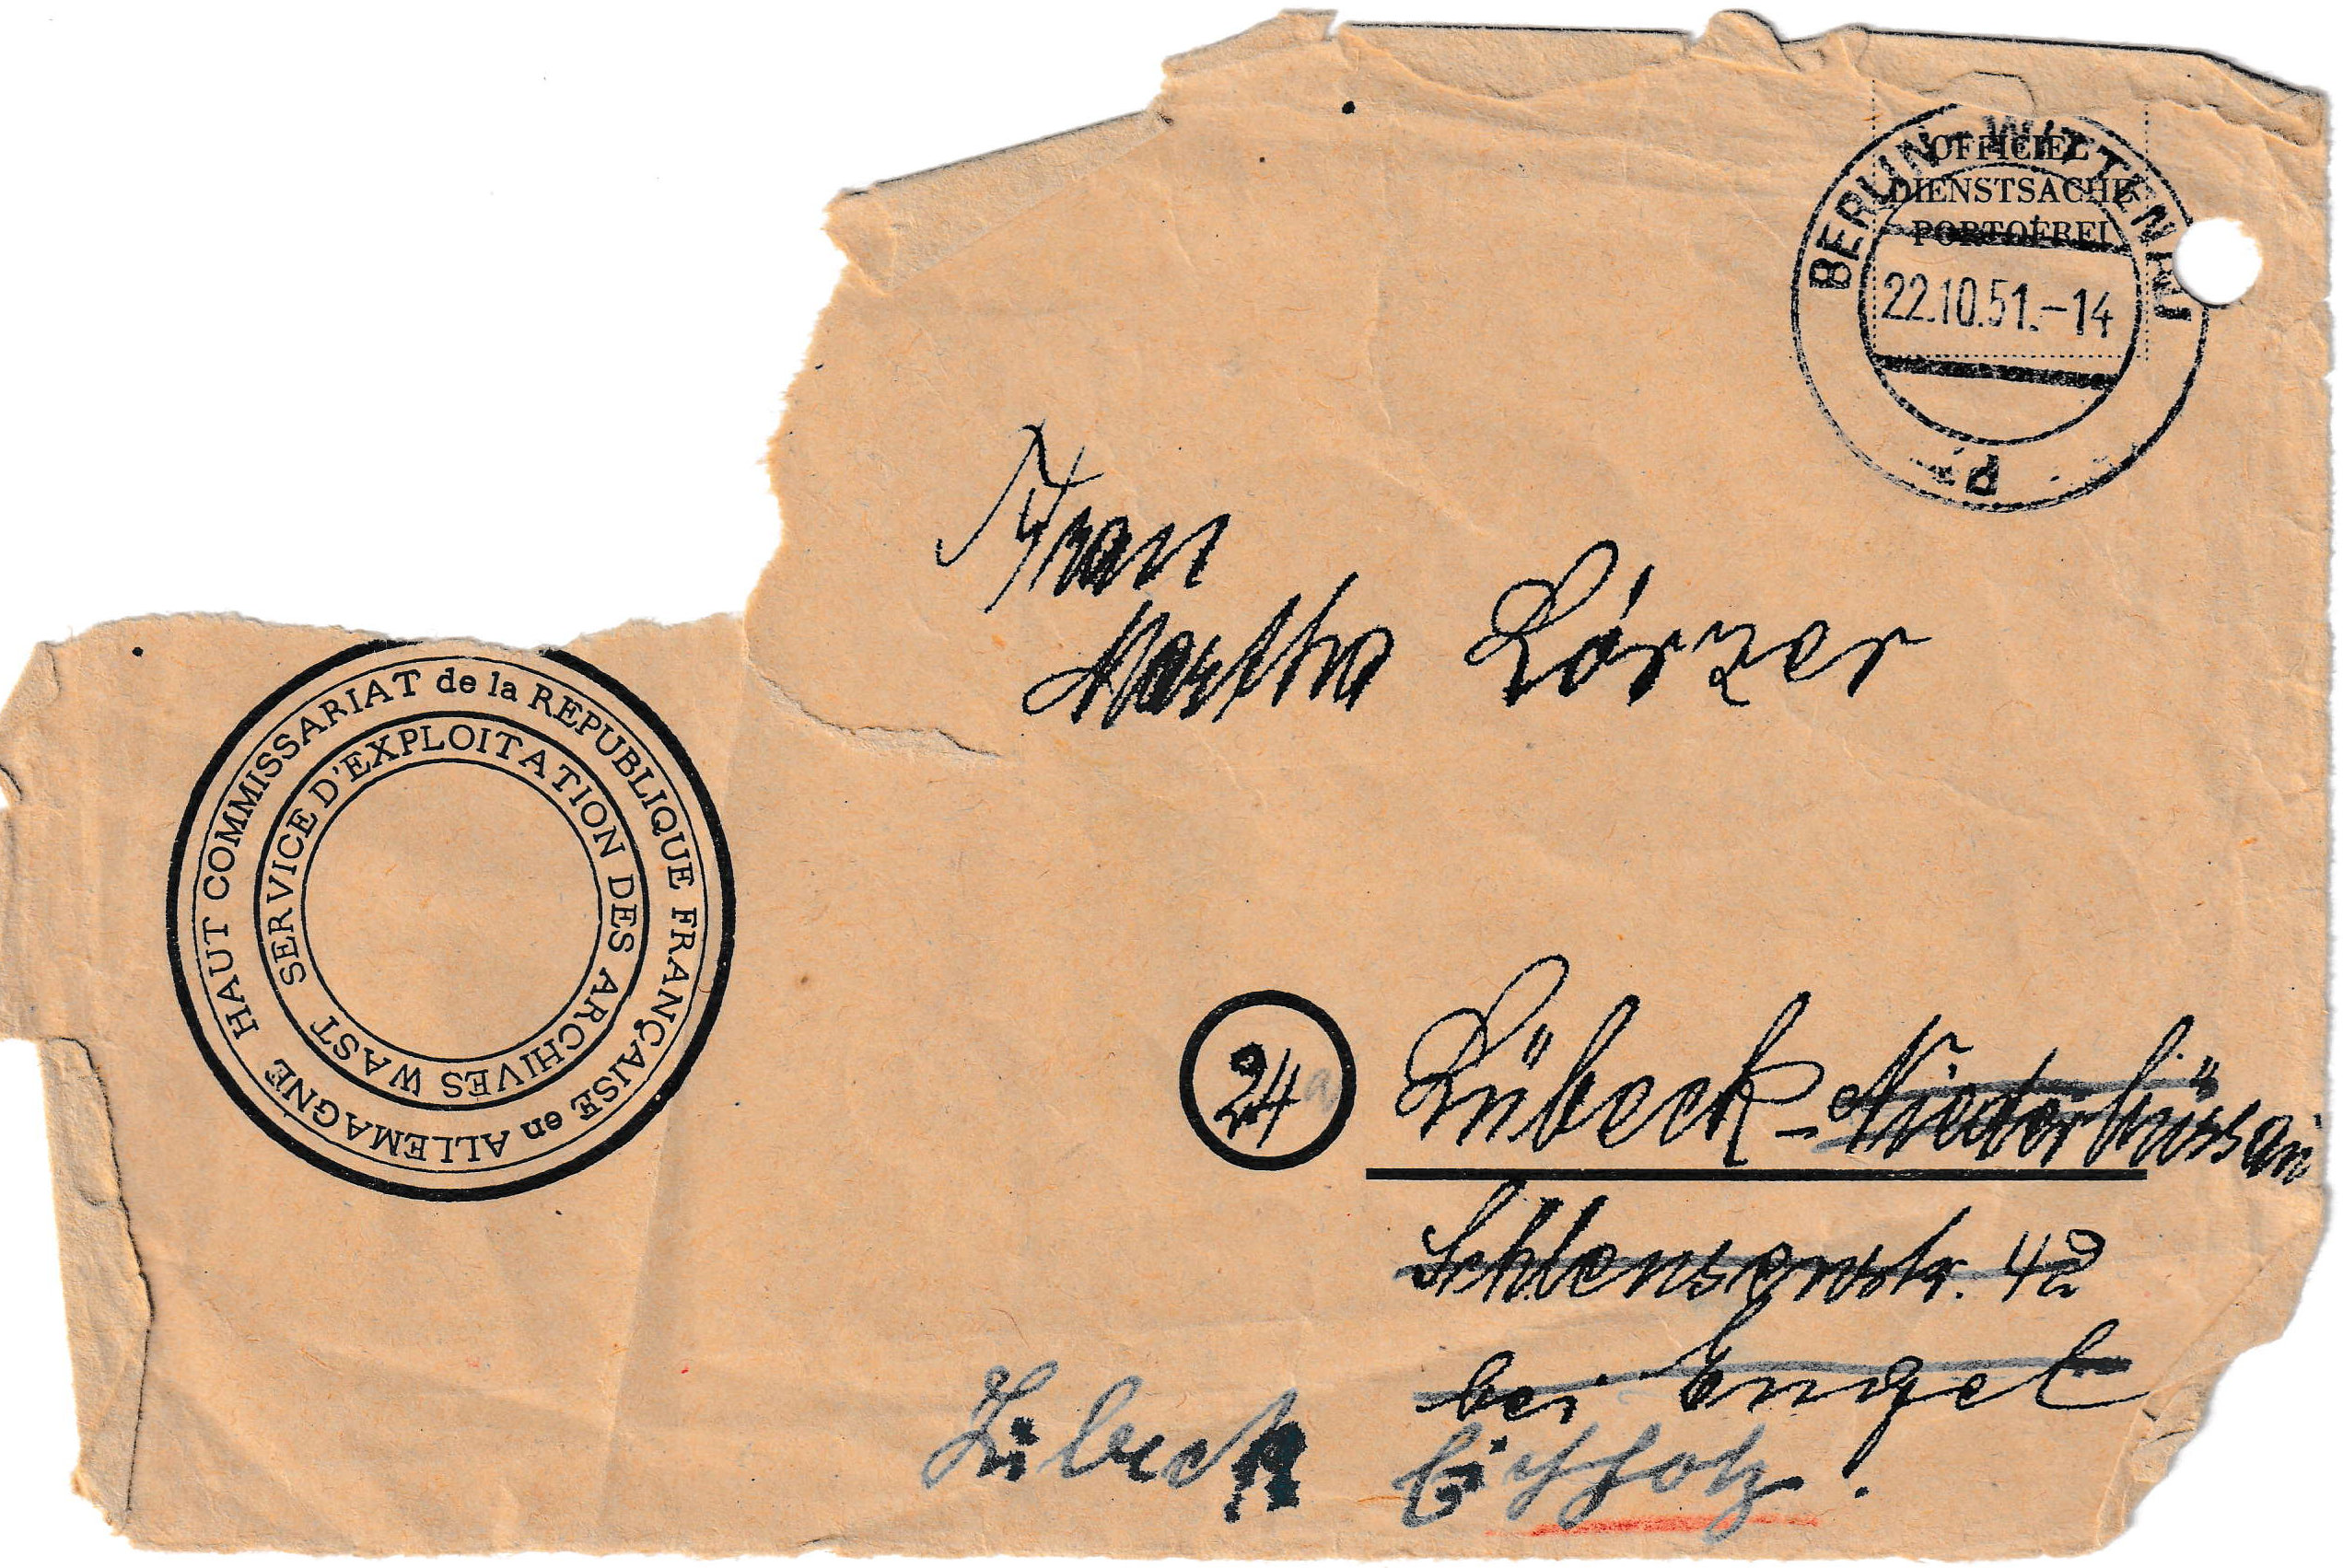 OFFICIEL
DIENSTSACHE
PORTOFREI
BERLIN-WITTENAU
22.10.51.-14
Frau
Martha Lörzer
HAUT COMMISSARIAT de la REPUBLIQUE FRANÇAISE en ALLEMAGNE
SERVICE D'EXPLOITATION DES ARCHIVES WAST
24a Lübeck-Niederbüssau
Schleusenstr. 42
bei Engel
Lübeck Eichholz.